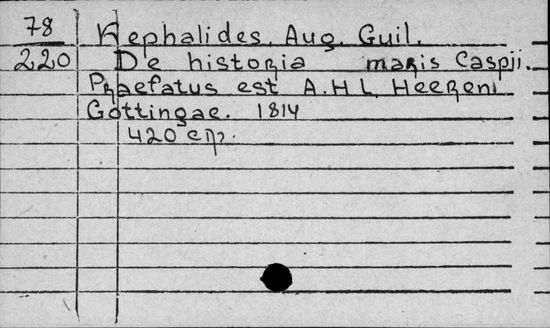 78 Kephalides. Aug. Guil.
220 De historia maris Caspii.
Praefatus est A.H L. Heereni
Gottingae. 1814
420 стр.